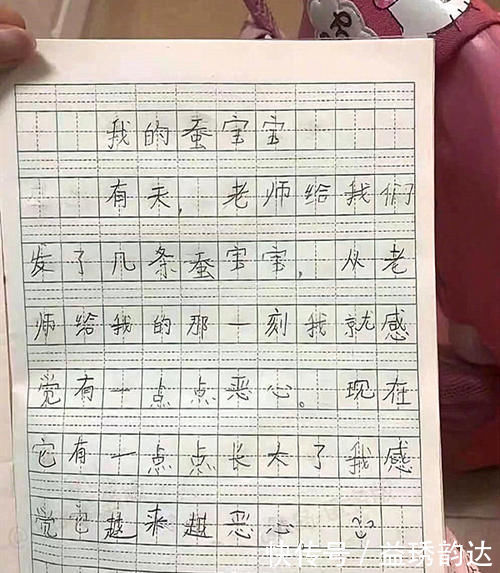 我的蚕宝宝
有天，老师给我们
发了几条蚕宝宝，从老
师给我的那一刻我就感
觉有一点点恶心。现在
它有一点点长大了我感
觉它越来越恶心
快传号/益琇韵达